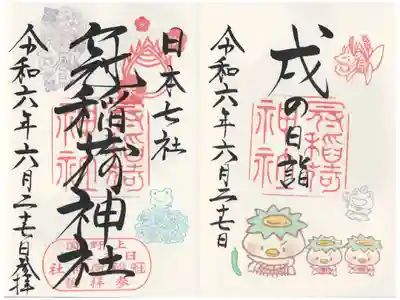 戌の日詣
冠稲荷
神社
令和六年六月二十七日
日本七社
冠稲荷神社
冠稲荷
神社
令和六年六月二十七日参拝